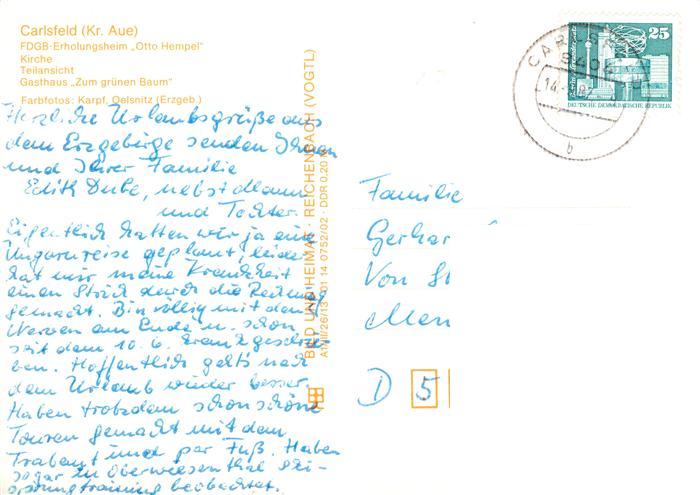 Carlsfeld (Kr. Aue)
FDGB-Erholungsheim „Otto Hempel"
Kirche
Teilansicht
Gasthaus „Zum grünen Baum"
Farbfotos: Karpf, Oelsnitz (Erzgeb.)
Herzliche Urlaubsgrüße aus
dem Erzgebirge senden Ihnen
und Ihrer Familie
Edith Dube, nebst Mann
und Tochter.
Eigentlich hatten wir ja eine
Ungarnreise geplant, leider
hat mir meine Krankheit
einen Strich durch die Rechnung
gemacht. Bin völlig mit den
Nerven am Ende u. schon
seit dem 10.6. krank geschrie-
ben. Hoffentlich geht's nach
dem Urlaub wieder besser.
Haben trotzdem schon schöne
Touren gemacht mit dem
Trabant und per Fuß. Haben
sogar in Oberwiesenthal Ski-
training beobachtet.
BILD UND HEIMAT · REICHENBACH (VOGTL)
01 14 0752/02 · DDR 0,20
25
DEUTSCHE DEMOKRATISCHE REPUBLIK
14
b
Familie
Gerhar
Von St
Men
D 5